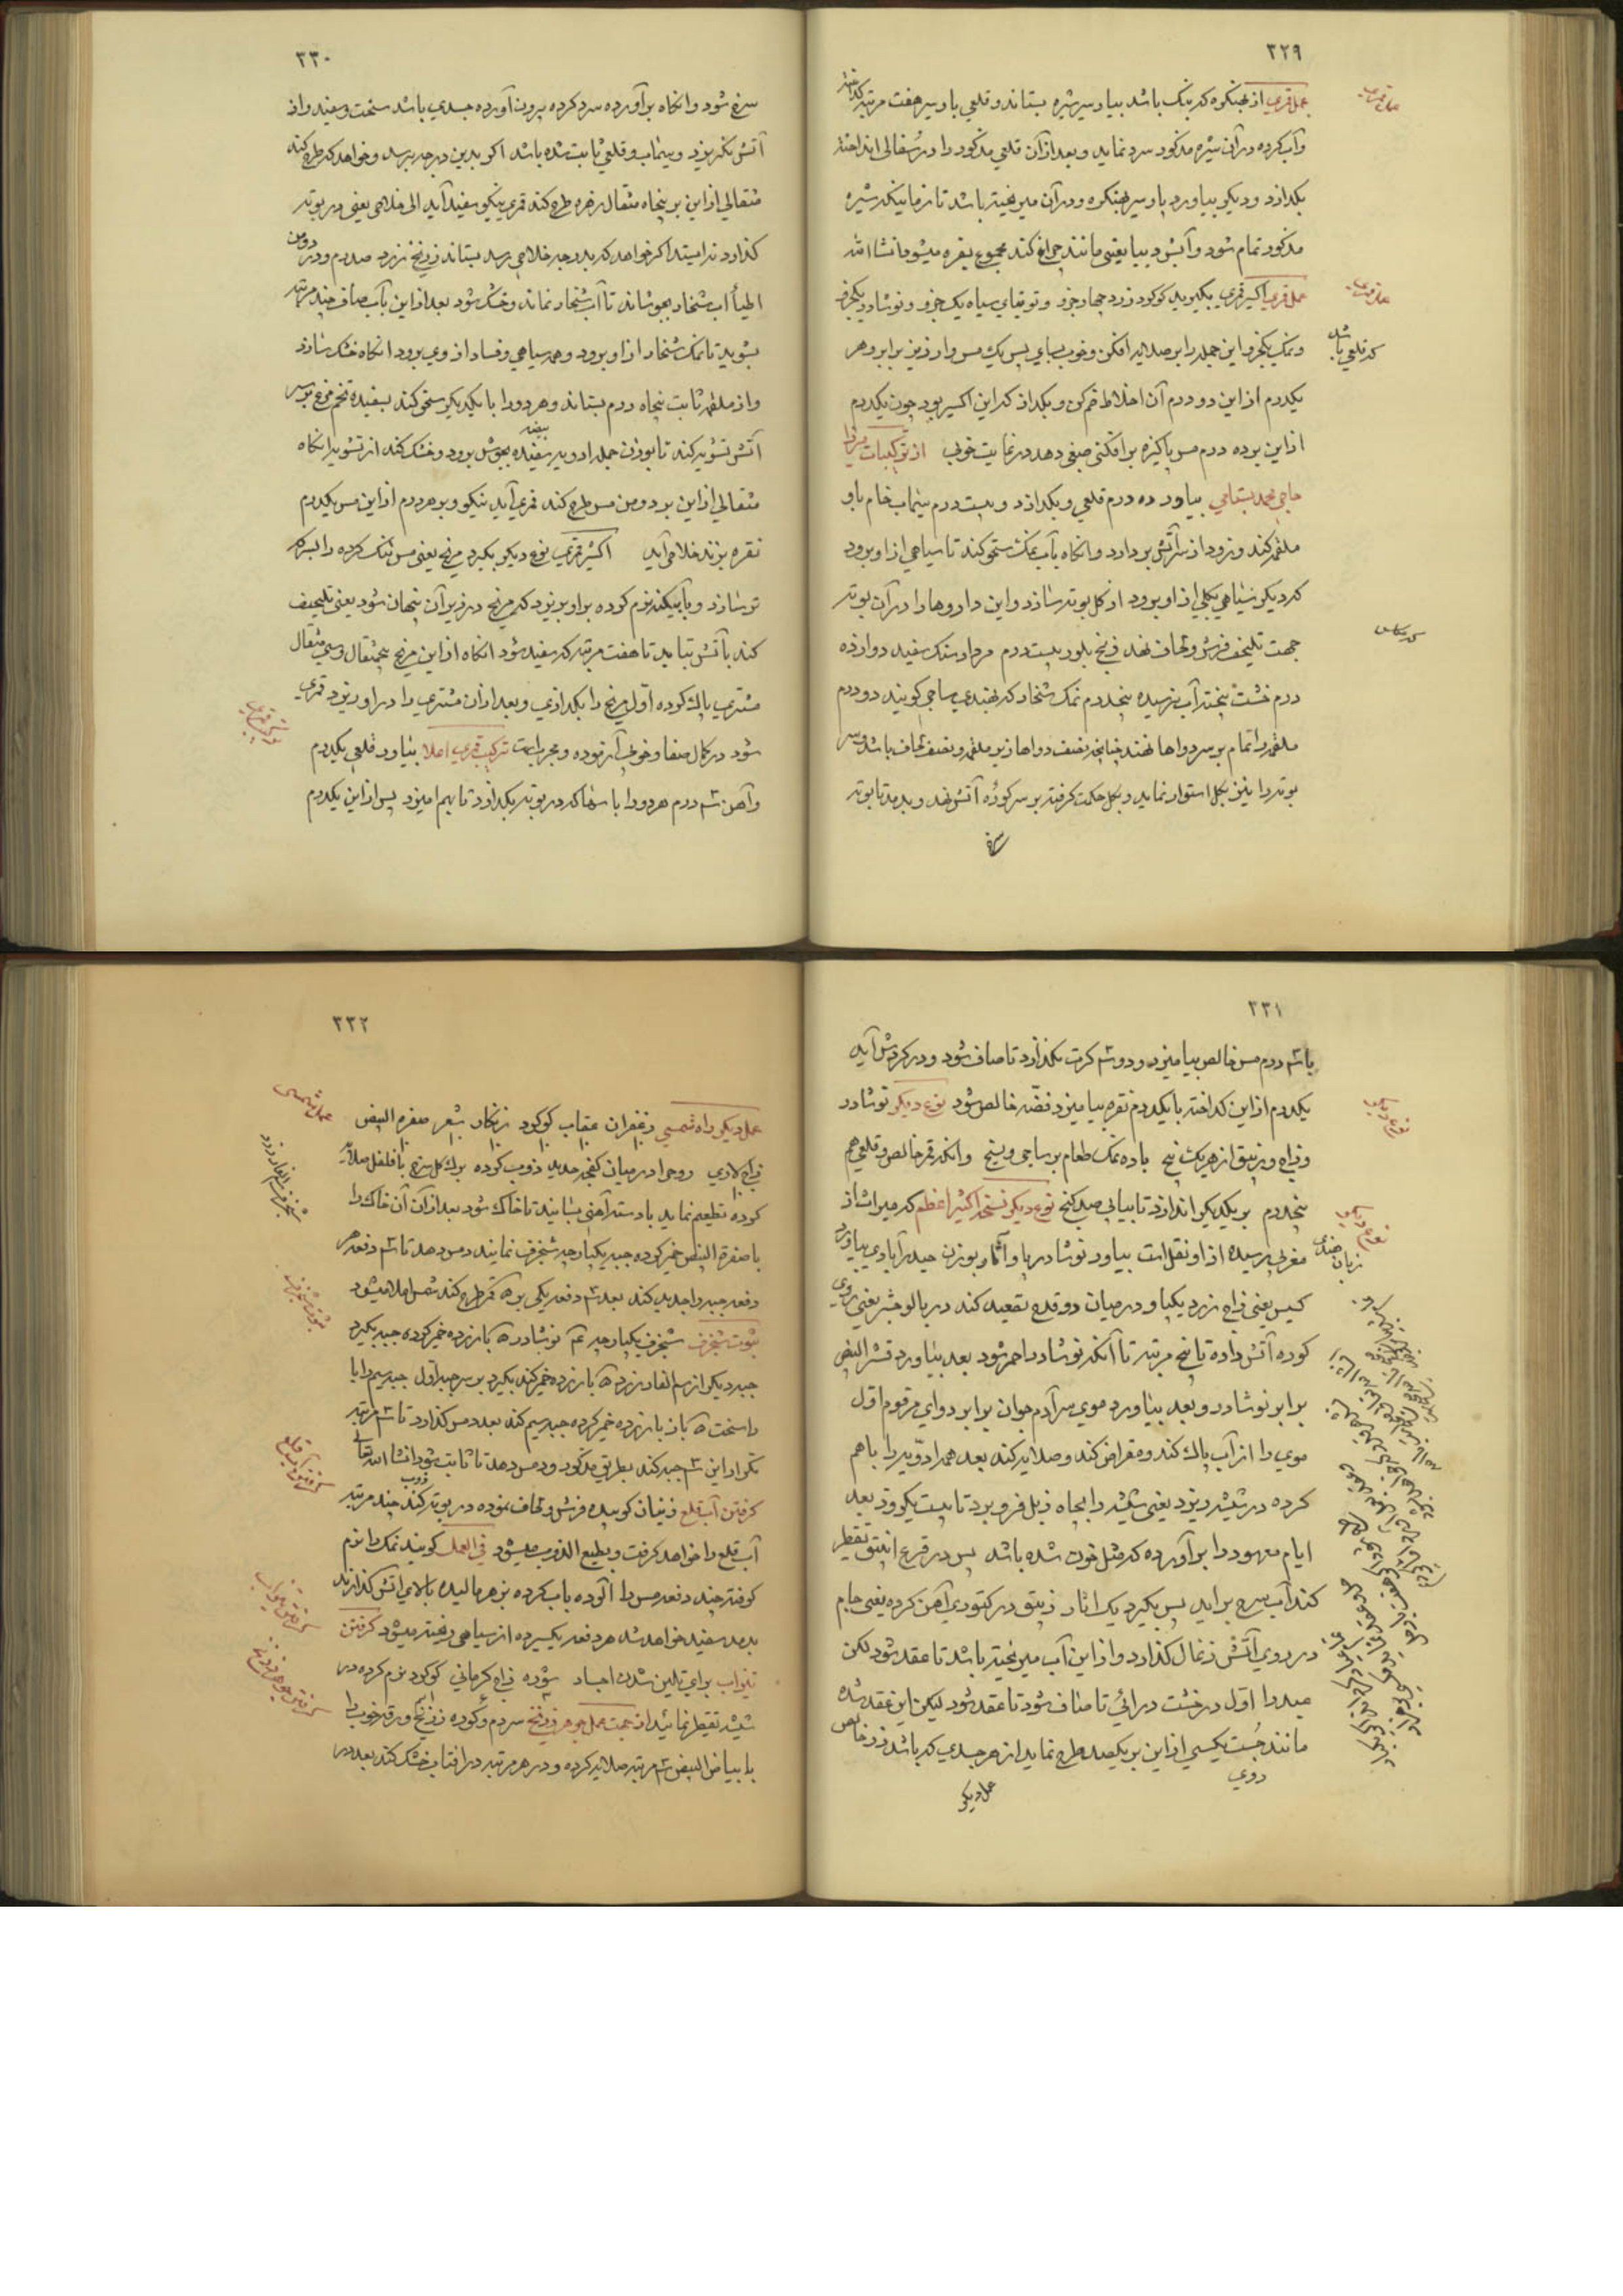 ۳۲۹
عمل قمری از بهنکره که بنک باشد بیاورد سیر شیره بستاند و قلعی پاو سیر هفت مرتبه کداخته
وآب کرده در آن شیره مذکور سرد نماید و بعد از آن قلعی مذکور را در سفالی انداخته
بکدازد و دیکر بیاورد پاو سیر بهنکره و در آن میریخته باشد تا زمانیکه شیره
مذکور تمام شود و آتش بیا یعنی مانند چراغ کند مجموع نقره میشود انشا الله
عمل قمری اکسیر قمری بکیرید کوکرد زرد چهار جزو و توتیای سیاه یک جزو و نوشادر یکجزو
و نمک یکجزو این جمله را بر صلایه افکن و خوب بسای پس یک مس و ارزیز برابر و هر
که قلعی باشد
یکدرم از این دو درم آن اخلاط ضم کن و بکداز که این اکسیر بود چون یکدرم
از این بر ده درم مس پاکیزه برافکنی صبغی دهد در نهایت خوبی از ترکیبات میرزا
حاجی محمد بسطامی بیاورد ده درم قلعی و بکدازد و بیست درم سیماب خام با او
ملغمه کند و زود از سر آتش بردارد و انکاه بآب نمک سحق کند تا سیاهی از او برود
که دیکر سیاهی بکلی از او برود از کل بوته سازد و این داروها را در آن بوته
جهت تلیحف فرش و لحاف نهد زرنیخ بلور بیست درم مردار سنک سفید دوازده
درم خشت پخته آب نرسیده پنجدرم نمک شخار که بهندی ساجی کویند دو درم
ملغمه را تمام بر سر دواها نهند چنانچه نصف دواها زیر ملغمه و نصف لحاف باشد و سر
بوته را نیز بکل استوار نماید و بکل حکمت کرفته بر سر کوره آتش نهد و بدمد تا بوته
سرخ
۳۳۰
سرخ شود و انکاه برآورده سرد کرده بیرون آورده جسدی باشد سخت و سفید و از
آتش نکریزد و سیماب و قلعی ثابت شده باشد اکر بدین درجه برسد و خواهد که طرح کند
مثقالی از این بر پنجاه مثقال زهره طرح کند قمری نیکو سفید آید الی خلاص یعنی در بوته
کذارد نه ایستد اکر خواهد که بدرجه خلاص رسد بستاند زرنیخ زرد صد درم و در دو من
اطیا آب شخار بجوشاند تا آب شخار نماند و خشک شود بعد از این بآب صاف چند مرتبه
بشوید تا نمک شخار از او برود و همه سیاهی و فساد از وی برود انکاه خشک سازد
و از ملغمه ثابت پنجاه درم بستاند و هر دو را با یکدیکر سحق کند بسفیده تخم مرغ بر سر
آتش تشویه کند تا بوزن جمله ادویه سفیده بیضه بجوشش برود و خشک کند از تشویه انکاه
مثقالی از این بر دو من مس طرح کند قمری آید نیکو و بر هر درم از این مس یکدرم
نقره بزند خلاص آید اکسیر قمری نوع دیکر بکیرد مریخ یعنی مس تنک کرده را بسرکه
تر سازد و با آبیکینه نرم کرده بر او بریزد که مریخ در زیر آن پنهان شود یعنی تلیحف
کند بآتش بتابد تا هفت مرتبه که سفید شود انکاه از این مریخ پنجمثقال و سی مثقال
مشتری پاک کرده اول مریخ را بکدازی و بعد از آن مشتری را در او ریزد قمری
شود در کمال صفا و خوبی آزموده و مجربست ترکیب قمری اعلا بیاورد قلعی یکدرم
ترکیب قمری
و آهن ۳ درم هر دو را با سهاکه در بوته بکدازد تا بهم آمیزد پس از این یکدرم
۳۳۱
با ۳ درم مس خالص بیامیزد و دو ۳ کرت بکذازد تا صاف شود و در کردش آید
یکدرم از این کداخته با یکدرم نقره بیامیزد فضه خالص شود نوع دیکر نوشادر
نوع دیکر
و زاج و زیبق از هر یک پنج با ده نمک طعام بر ساجی و پنج وانکه قمر خالص و قلعی هم
پنجدرم بر یکدیکر اندازد تا بیابی صد کنج نوع دیکر نسخه اکسیر اعظم که میراث از
نوع دیکر
مغربی رسیده از او نقل است بیاورد نوشادر پاو آثار بوزن حیدرآبادی بیاورد
کسیس یعنی زاج زرد یکپا و در میان دو قدح تصعید کند در بالو جنتر یعنی روی
کرده آتش داده تا پنج مرتبه تا آنکه نوشادر احمر شود بعد بیاورد قشر البیض
برابر نوشادر و بعد بیاورد موی سر آدم جوان برابر دوای مرقوم اول
موی را از آب پاک کند و مقراض کند و صلایه کند بعد همه ادویه را باهم
کرده در شیشه ریزد یعنی شیشه را بچاه زبل فرو برد تا بیست یکروز بعد
ایام معهود را برآورده که مثل خون شده باشد پس در قرع انبیق تقطیر
کند آب سرخ برآید پس بکیرد یک آثار زیبق در کتوری آهن کرده یعنی جام
در روی آتش زغال کذارد و از این آب میریخته باشد تا عقد شود لکن
صید را اول در خشت درائی تا صاف شود تا عقد شود لیکن این عقد شده
مانند جست یکسی از این بر یکصد طرح نماید از هر جسدی که باشد زر خالص
روی
عمل دیکر
۳۳۲
عمل دیکر راه شمسی زعفران عقاب کوکرد زنکار شعر صفره البیض
عمل شمسی
زاج لادی روحرا در میان کفچه حدید ذوب کرده برک کل سرخ با فلفل صلایه
کرده تطعیم نماید با دسته آهنی بسایند تا خاک شود بعد از آن آن خاک را
با صفرة البیض خمیر کرده جبه یکپارچه شنجرف نمایند دمس دهد تا ۳ دفعه هر
دفعه جبه را جدید کند بعد ۳ دفعه یکی بر قمر طرح کند شمس اعلا میشود
ثبوت شنجرف شنجرف یکپارچه نوشادر با زرده خمیر کرده جبه بکیرد
ثبوت شنجرف
جبه دیکر از سم الفار زرد با زرده خمیر کند بکیرد بر سر جبه اول جبه سیم را با
راسخت باز با زرده خمیر کرده جبه سیم کند بعد دمس کذارد تا ۳ مرتبه
تکرار این ۳ جبه کند بطریق مذکور و دمس دهد تا ثابت شود انشا الله تعالی
کرفتن آب قلع زنیان کوبیده فرش و لحاف نموده در بوته ذوب کند چند مرتبه
کرفتن آب قلع
آب قلع را خواهد کرفت و بطیع الذوب میشود فی العمل کویند نمک را نرم
کوفته چند دفعه مس را آلوده بآب کرده بزهر مالیده بالای آتش کذارند
بعد سفید خواهد شد هر دفعه یکسیر ده از سیاهی ریخته میشود کرفتن
تیزاب برای تلین شدن اجساد شوره زاج کرمانی کوکرد نرم کرده در
کرفتن تیزاب
شیشه تقطیر نمائید از جهت عمل جوهر زرنیخ سردم و کوده زرنیخ ورقه خوب را
کرفتن جوهر زرنیخ
با بیاض البیض ۳ مرتبه صلایه کرده و در هر مرتبه در افتاب خشک کند بعد در